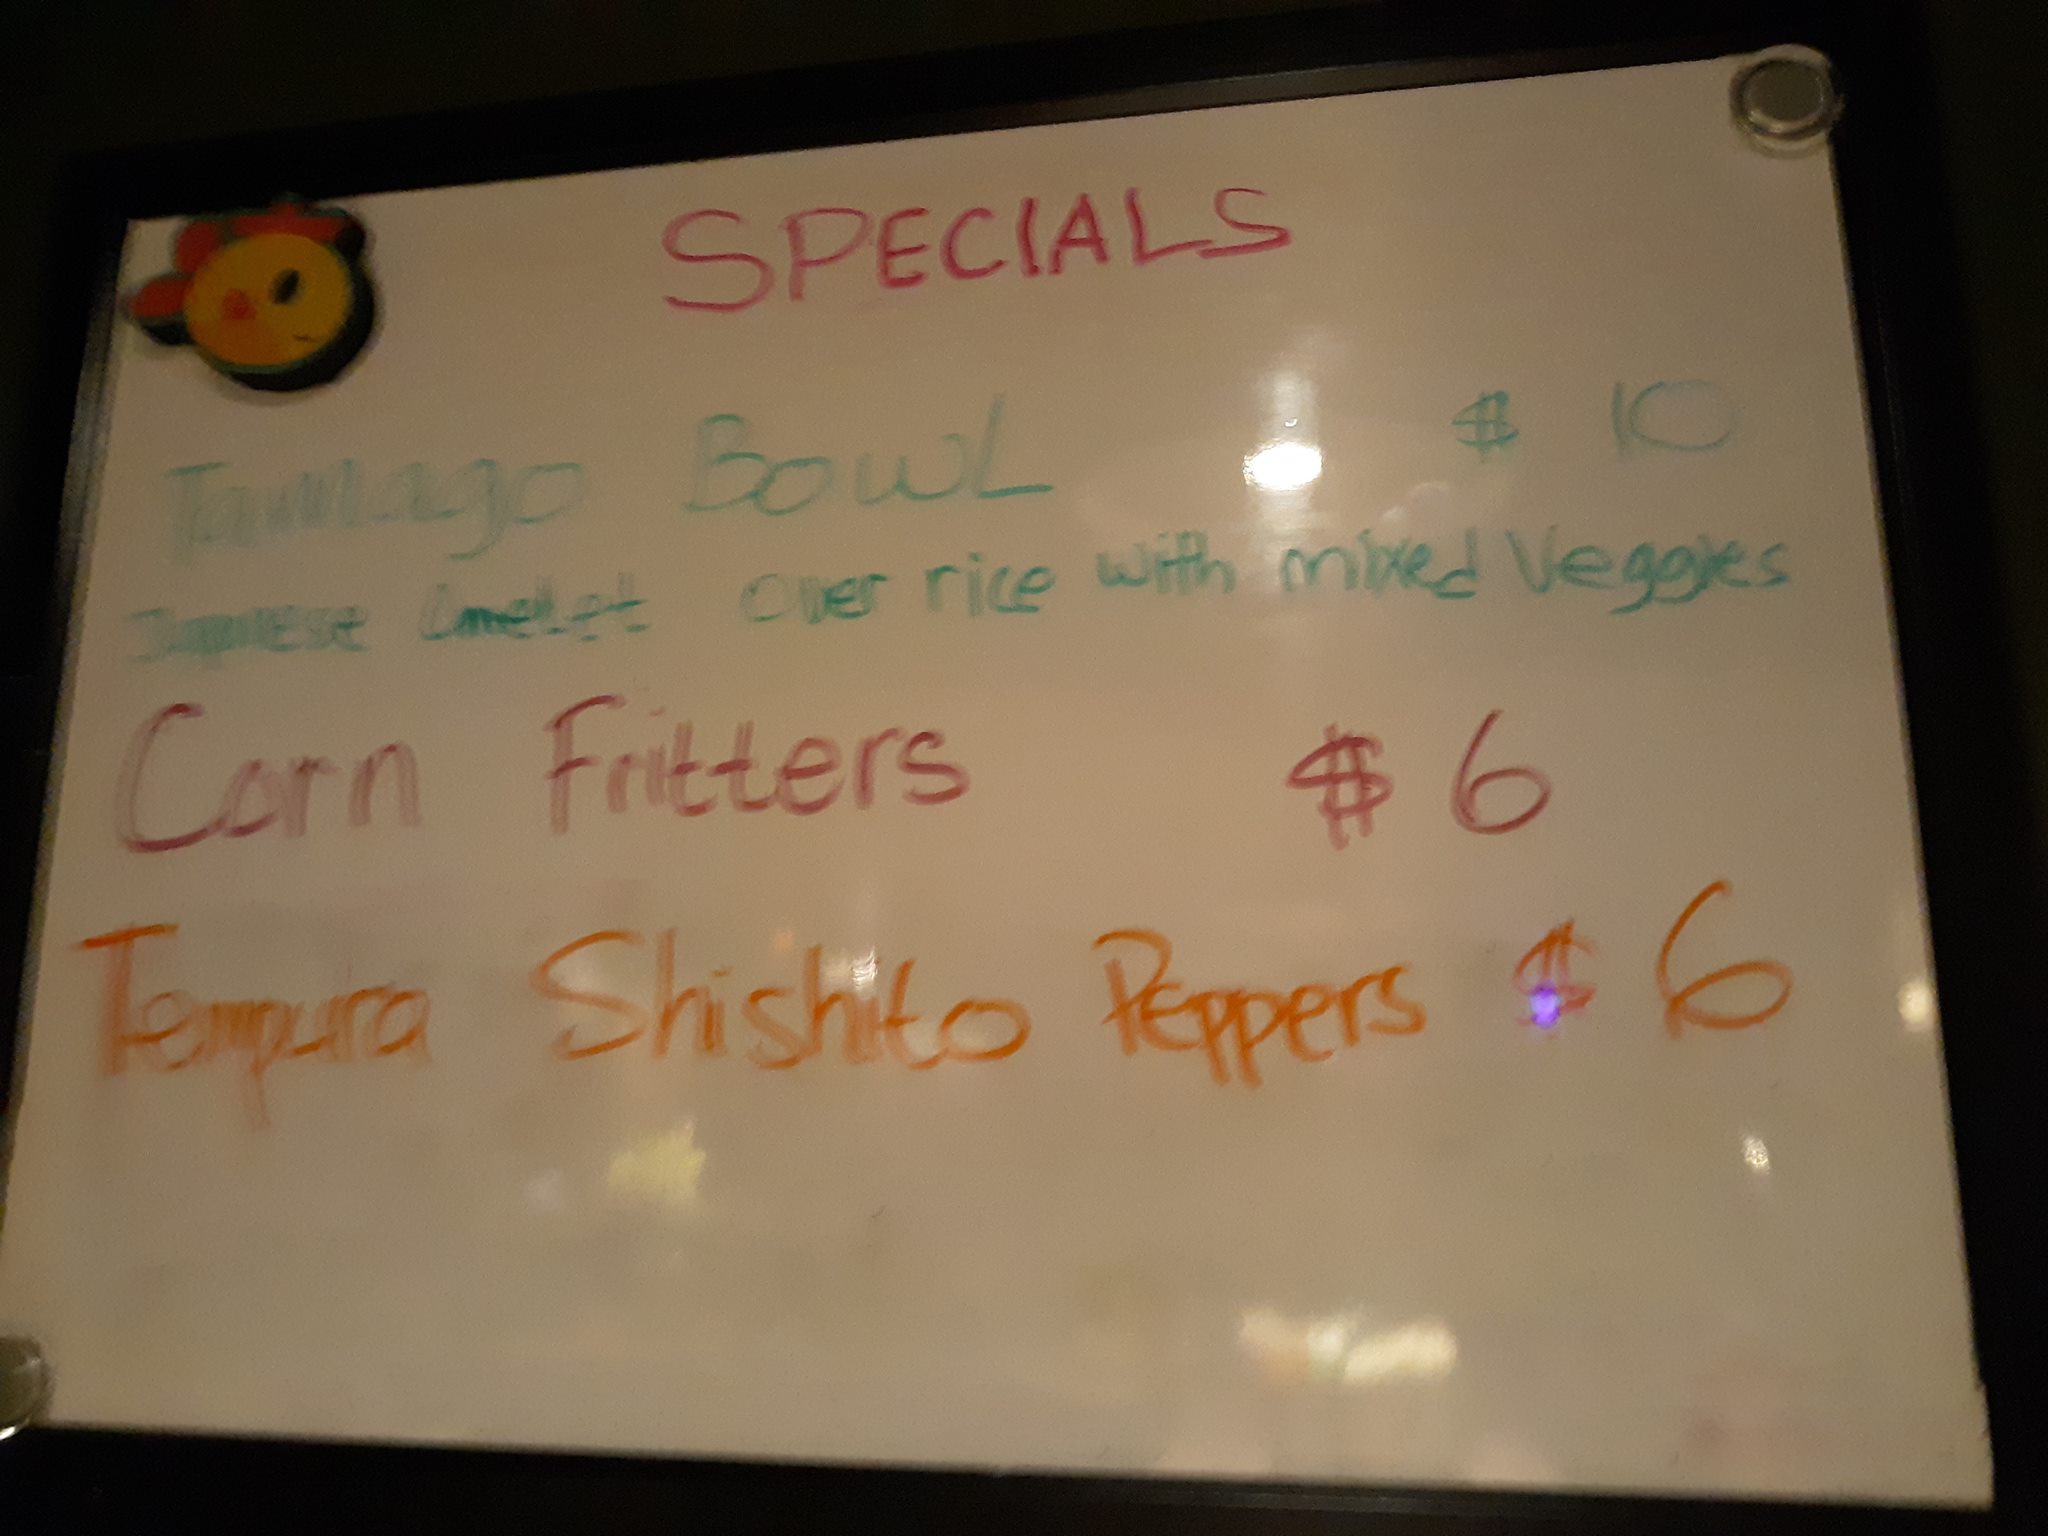 SPECIALS
Tamago BowL $ 10
Japanese Omelet over rice with mixed Veggies
Corn Fritters $ 6
Tempura Shishito Peppers $ 6